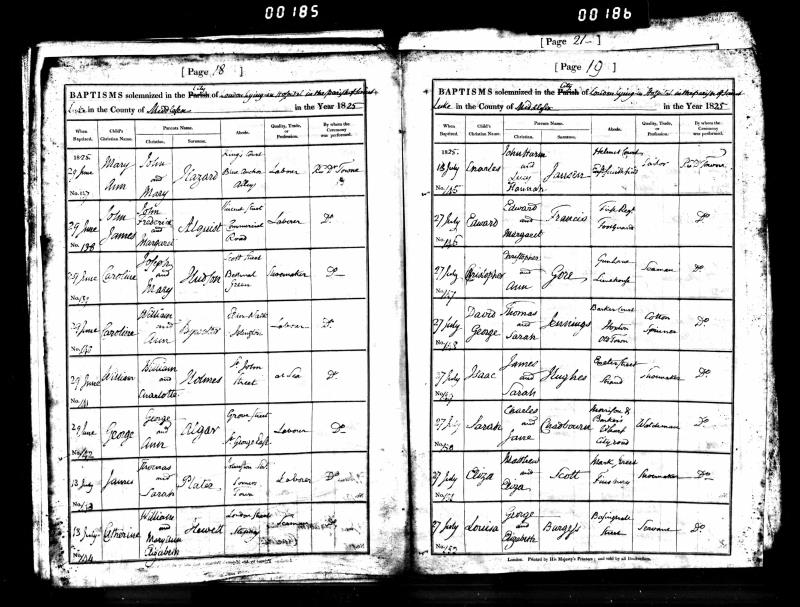 00185
00186
[ Page 18 ]
BAPTISMS solemnized in the Parish of City London Lying in Hospital in the parish of Saint
Luke in the County of Middlesex in the Year 1825
When Baptized. Child's Christian Name. Parents Name. Christian. Surname. Abode. Quality, Trade, or Profession. By whom the Ceremony was performed.
1825. 29 June No. 137 Mary Ann John and Mary Hazard Kings Court Blue Anchor Alley Labour Revd Dr Towne
29 June No. 138 John James John Frederick and Margaret Alquist Vincent Street Commercial Road Laborer Do.
29 June No. Caroline Joseph and Mary Hudson Scott Street Bethnal Green Shoemaker Do.
29 June No. 140 Caroline William and Ann Islington Labour Do.
29 June No. 141 William William and Charlotte Holmes St John Street at Sea Do.
29 June George George and Ann Algar Grove Street St George East Labour Do.
13 July James Thomas and Sarah Somers Town Labour Do.
13 July 144 Catherine William and Mary Ann Elizabeth Howell London Street Seaman
[ Page 21 ]
[ Page 19 ]
BAPTISMS solemnized in the Parish of City London Lying in Hospital in the parish of Saint
Luke in the County of Middlesex in the Year 1825
When Baptized. Child's Christian Name. Parents Name. Christian. Surname. Abode. Quality, Trade, or Profession. By whom the Ceremony was performed.
1825. 13 July No. 145 Charles John Harm and Lucy Hannah Jansen Helmet Court Tailor Revd Dr Towne
27 July No. 146 Edward Edward and Margaret Francis First Regt. Footguards Do.
27 July No. 147 Christopher Christopher and Ann Gore Gun Lane Limehouse Seaman Do.
27 July No. 148 David George Thomas and Sarah Jennings Barker Court Hoxton Old Town Cotton Spinner Do.
27 July Isaac James and Sarah Hughes Exeter Street Strand Shoemaker Do.
27 July Sarah Charles and Jane Chadbourn Wharf City road Do.
27 July Eliza Matthew and Eliza Scott Mark Street Finsbury Shoemaker Do.
27 July Louisa George and Elizabeth Burgess Street Servant Do.
London: Printed by His Majesty's Printers; and sold by all Booksellers.